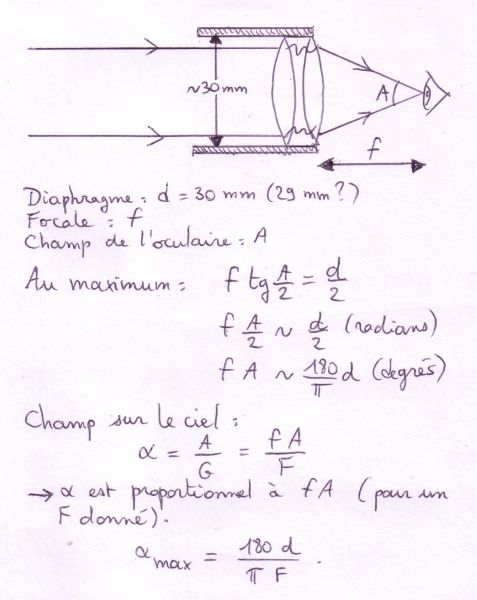 ~30mm
A
f
Diaphragme : d = 30 mm (29 mm ?)
Focale : f
Champ de l'oculaire : A
Au maximum : f tg A/2 = d/2
f A/2 ~ d/2 (radians)
f A ~ 180/π d (degrés)
Champ sur le ciel :
α = A/G = fA/F
→ α est proportionnel à fA (pour un
F donné).
α max = 180 d/π F .